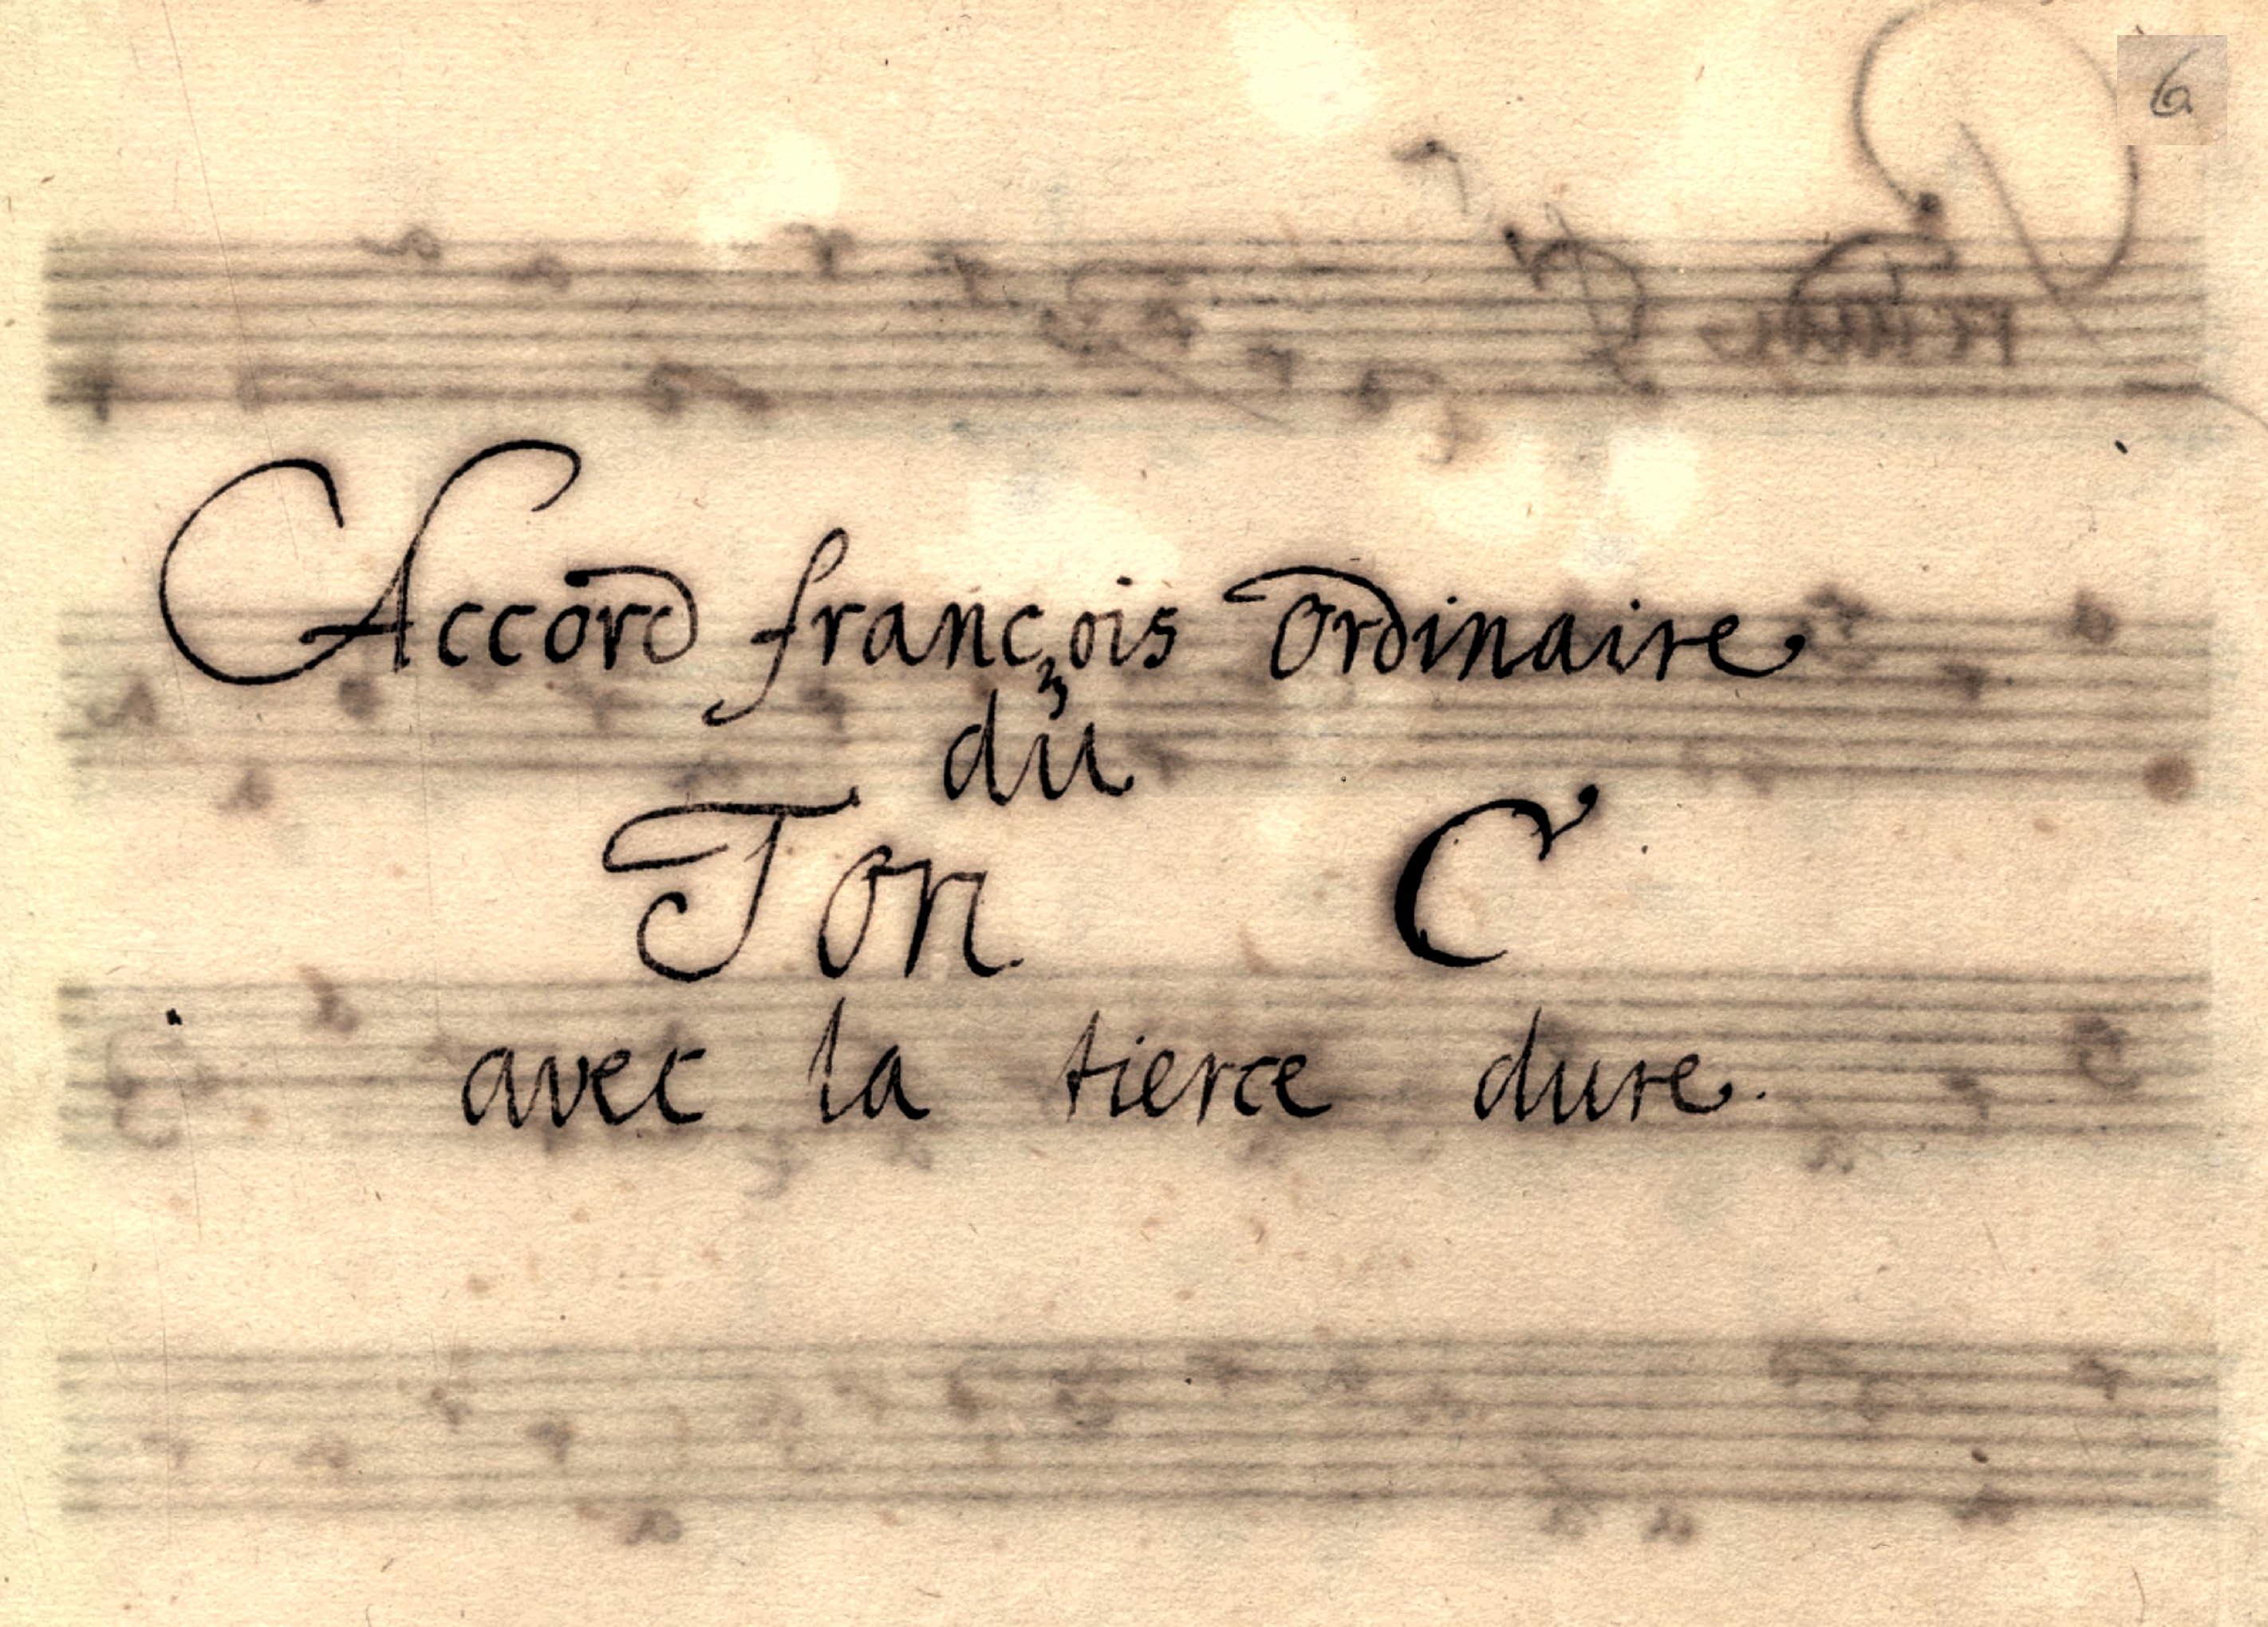 6
Accord françois Ordinaire
du
Ton C
avec la tierce dure.